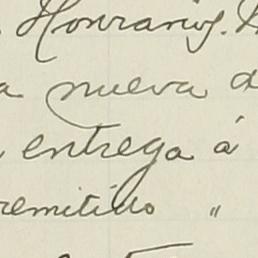 Honrarios.
a nueva d
entrega á
remitido "